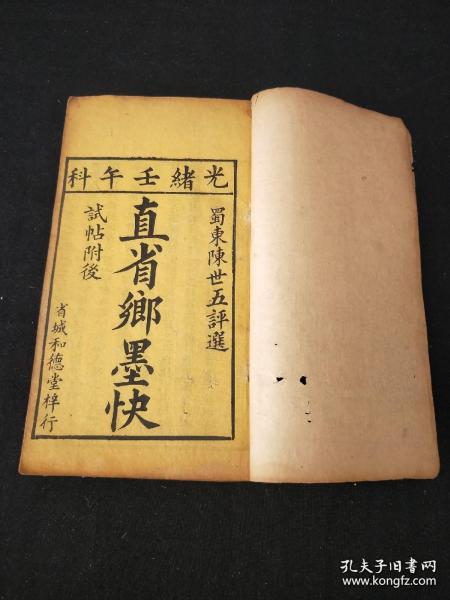 光緒壬午科
蜀東陳世五評選
直省鄉墨快
試帖附後
省城和德堂梓行
孔夫子旧书网
www.kongfz.com